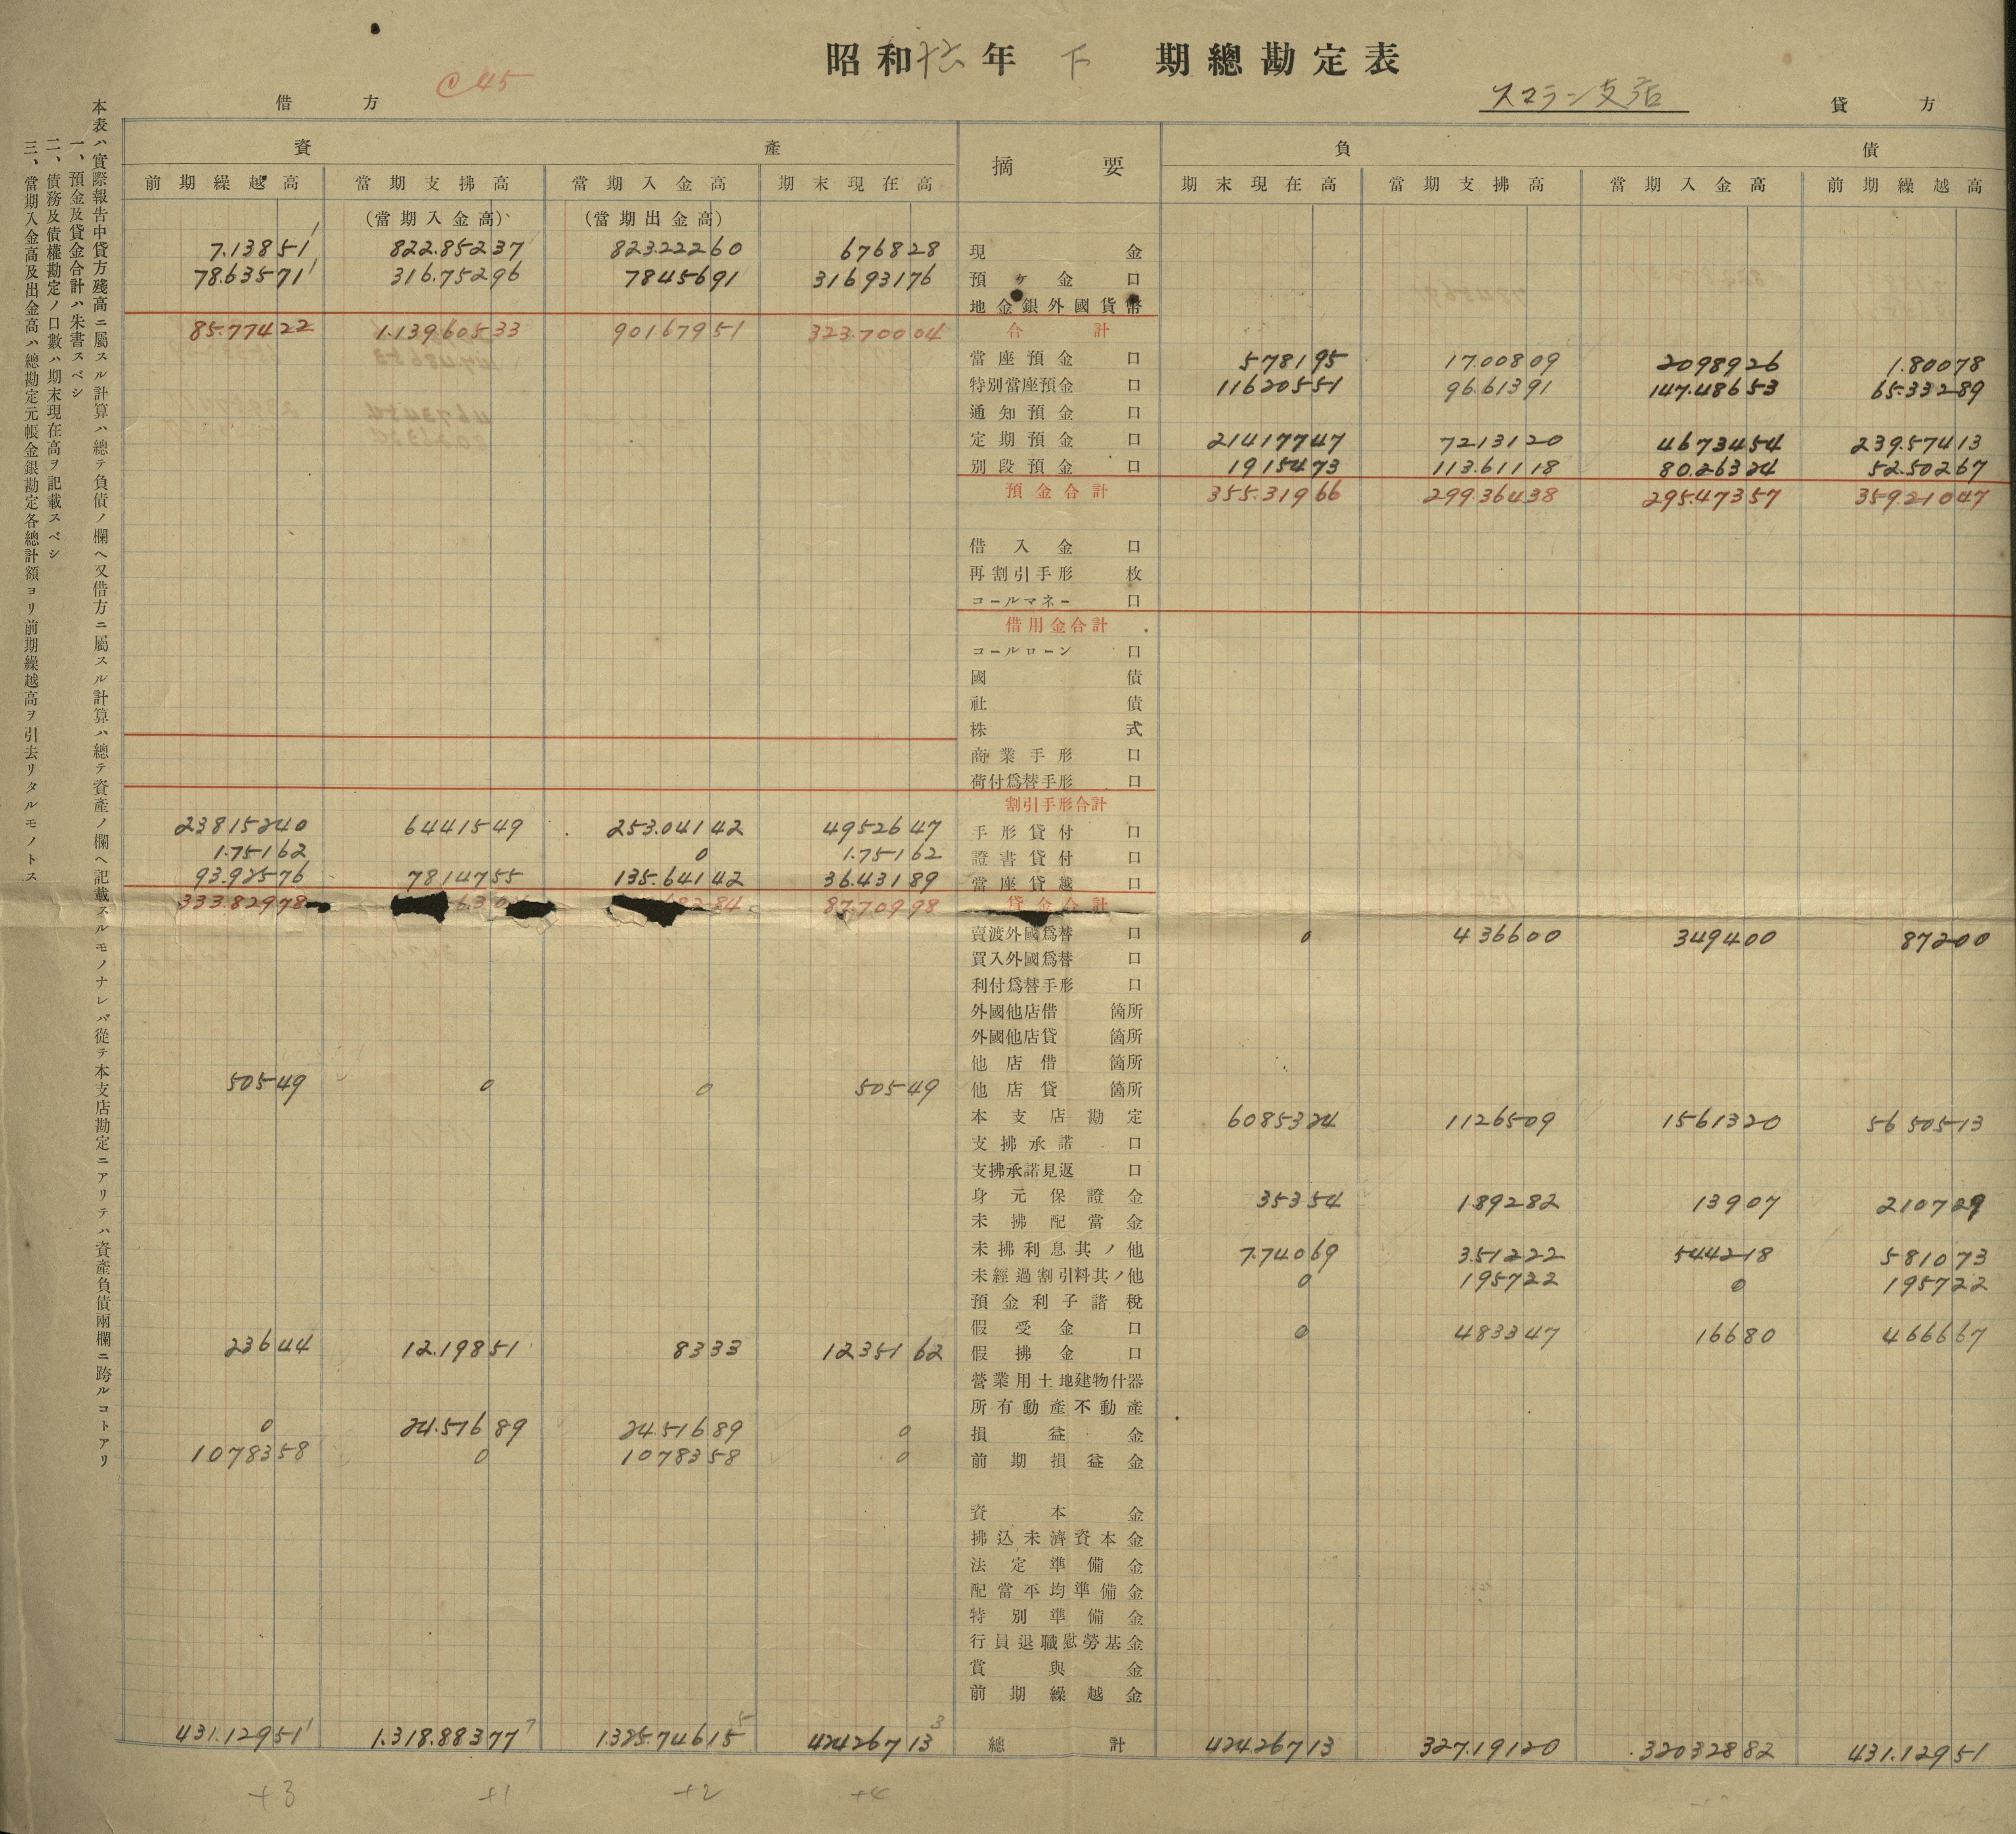 昭和十六年 下 期總勘定表
@45
借方
スマラン支店
貸方
本表ハ實際報告中貸方殘高ニ屬スル計算ハ總テ負債ノ欄ヘ又借方ニ屬スル計算ハ總テ資產ノ欄ヘ記載スルモノナレバ從テ本支店勘定ニアリテハ資產負債兩欄ニ跨ルコトアリ
一、預金及貸金合計ハ朱書スベシ
二、債務及債權勘定ノ口數ハ期末現在高ヲ記載スベシ
三、當期入金高及出金高ハ總勘定元帳金銀勘定各總計額ヨリ前期繰越高ヲ引去リタルモノトス
資產 摘要 負債
前期繰越高 當期支拂高 當期入金高 期末現在高 期末現在高 當期支拂高 當期入金高 前期繰越高
(當期入金高) (當期出金高)
7.13851 822.85237 823.22260 676828 現金
78.63571 316.75296 7845691 31693176 預ケ金 口
地金銀外國貨幣
85.77422 1.139.60533 90167951 323.70004 合計
當座預金 口 578195 17.00809 2098926 1.80078
特別當座預金 口 11620551 96.61391 147.48653 65.33289
通知預金 口
定期預金 口 21417747 7213120 4673454 239.57413
別段預金 口 1915473 113.61118 80.26324 52.50267
預金合計 355.31966 299.36438 295.47357 359.21047
借入金 口
再割引手形 枚
コールマネー 口
借用金合計
コールローン 口
國債
社債
株式
商業手形 口
荷付爲替手形 口
割引手形合計
23815240 6441549 253.04142 4952647 手形貸付 口
1.75162 0 1.75162 證書貸付 口
93.92576 7814755 135.64142 36.43189 當座貸越 口
333.82978 87.70998 貸金合計
賣渡外國爲替 口 0 436600 349400 87200
買入外國爲替 口
利付爲替手形 口
外國他店借 箇所
外國他店貸 箇所
他店借 箇所
50549 0 0 50549 他店貸 箇所
本支店勘定 6085324 1126509 1561320 5650513
支拂承諾 口
支拂承諾見返 口
身元保證金 35354 189282 13907 210729
未拂配當金
未拂利息其ノ他 7.74069 351222 544218 581073
未經過割引料其ノ他 0 195722 0 195722
預金利子諸稅
假受金 口 0 483347 16680 466667
23644 12.19851 8333 1235162 假拂金 口
營業用土地建物什器
所有動產不動產
0 24.51689 24.51689 0 損益金
1078358 0 1078358 0 前期損益金
資本金
拂込未濟資本金
法定準備金
配當平均準備金
特別準備金
行員退職慰勞基金
賞與金
前期繰越金
431.12951 1.318.88377 1.325.74615 42426713 總計 424.26713 327.19120 32032882 431.12951
+3 +1 +2 +4